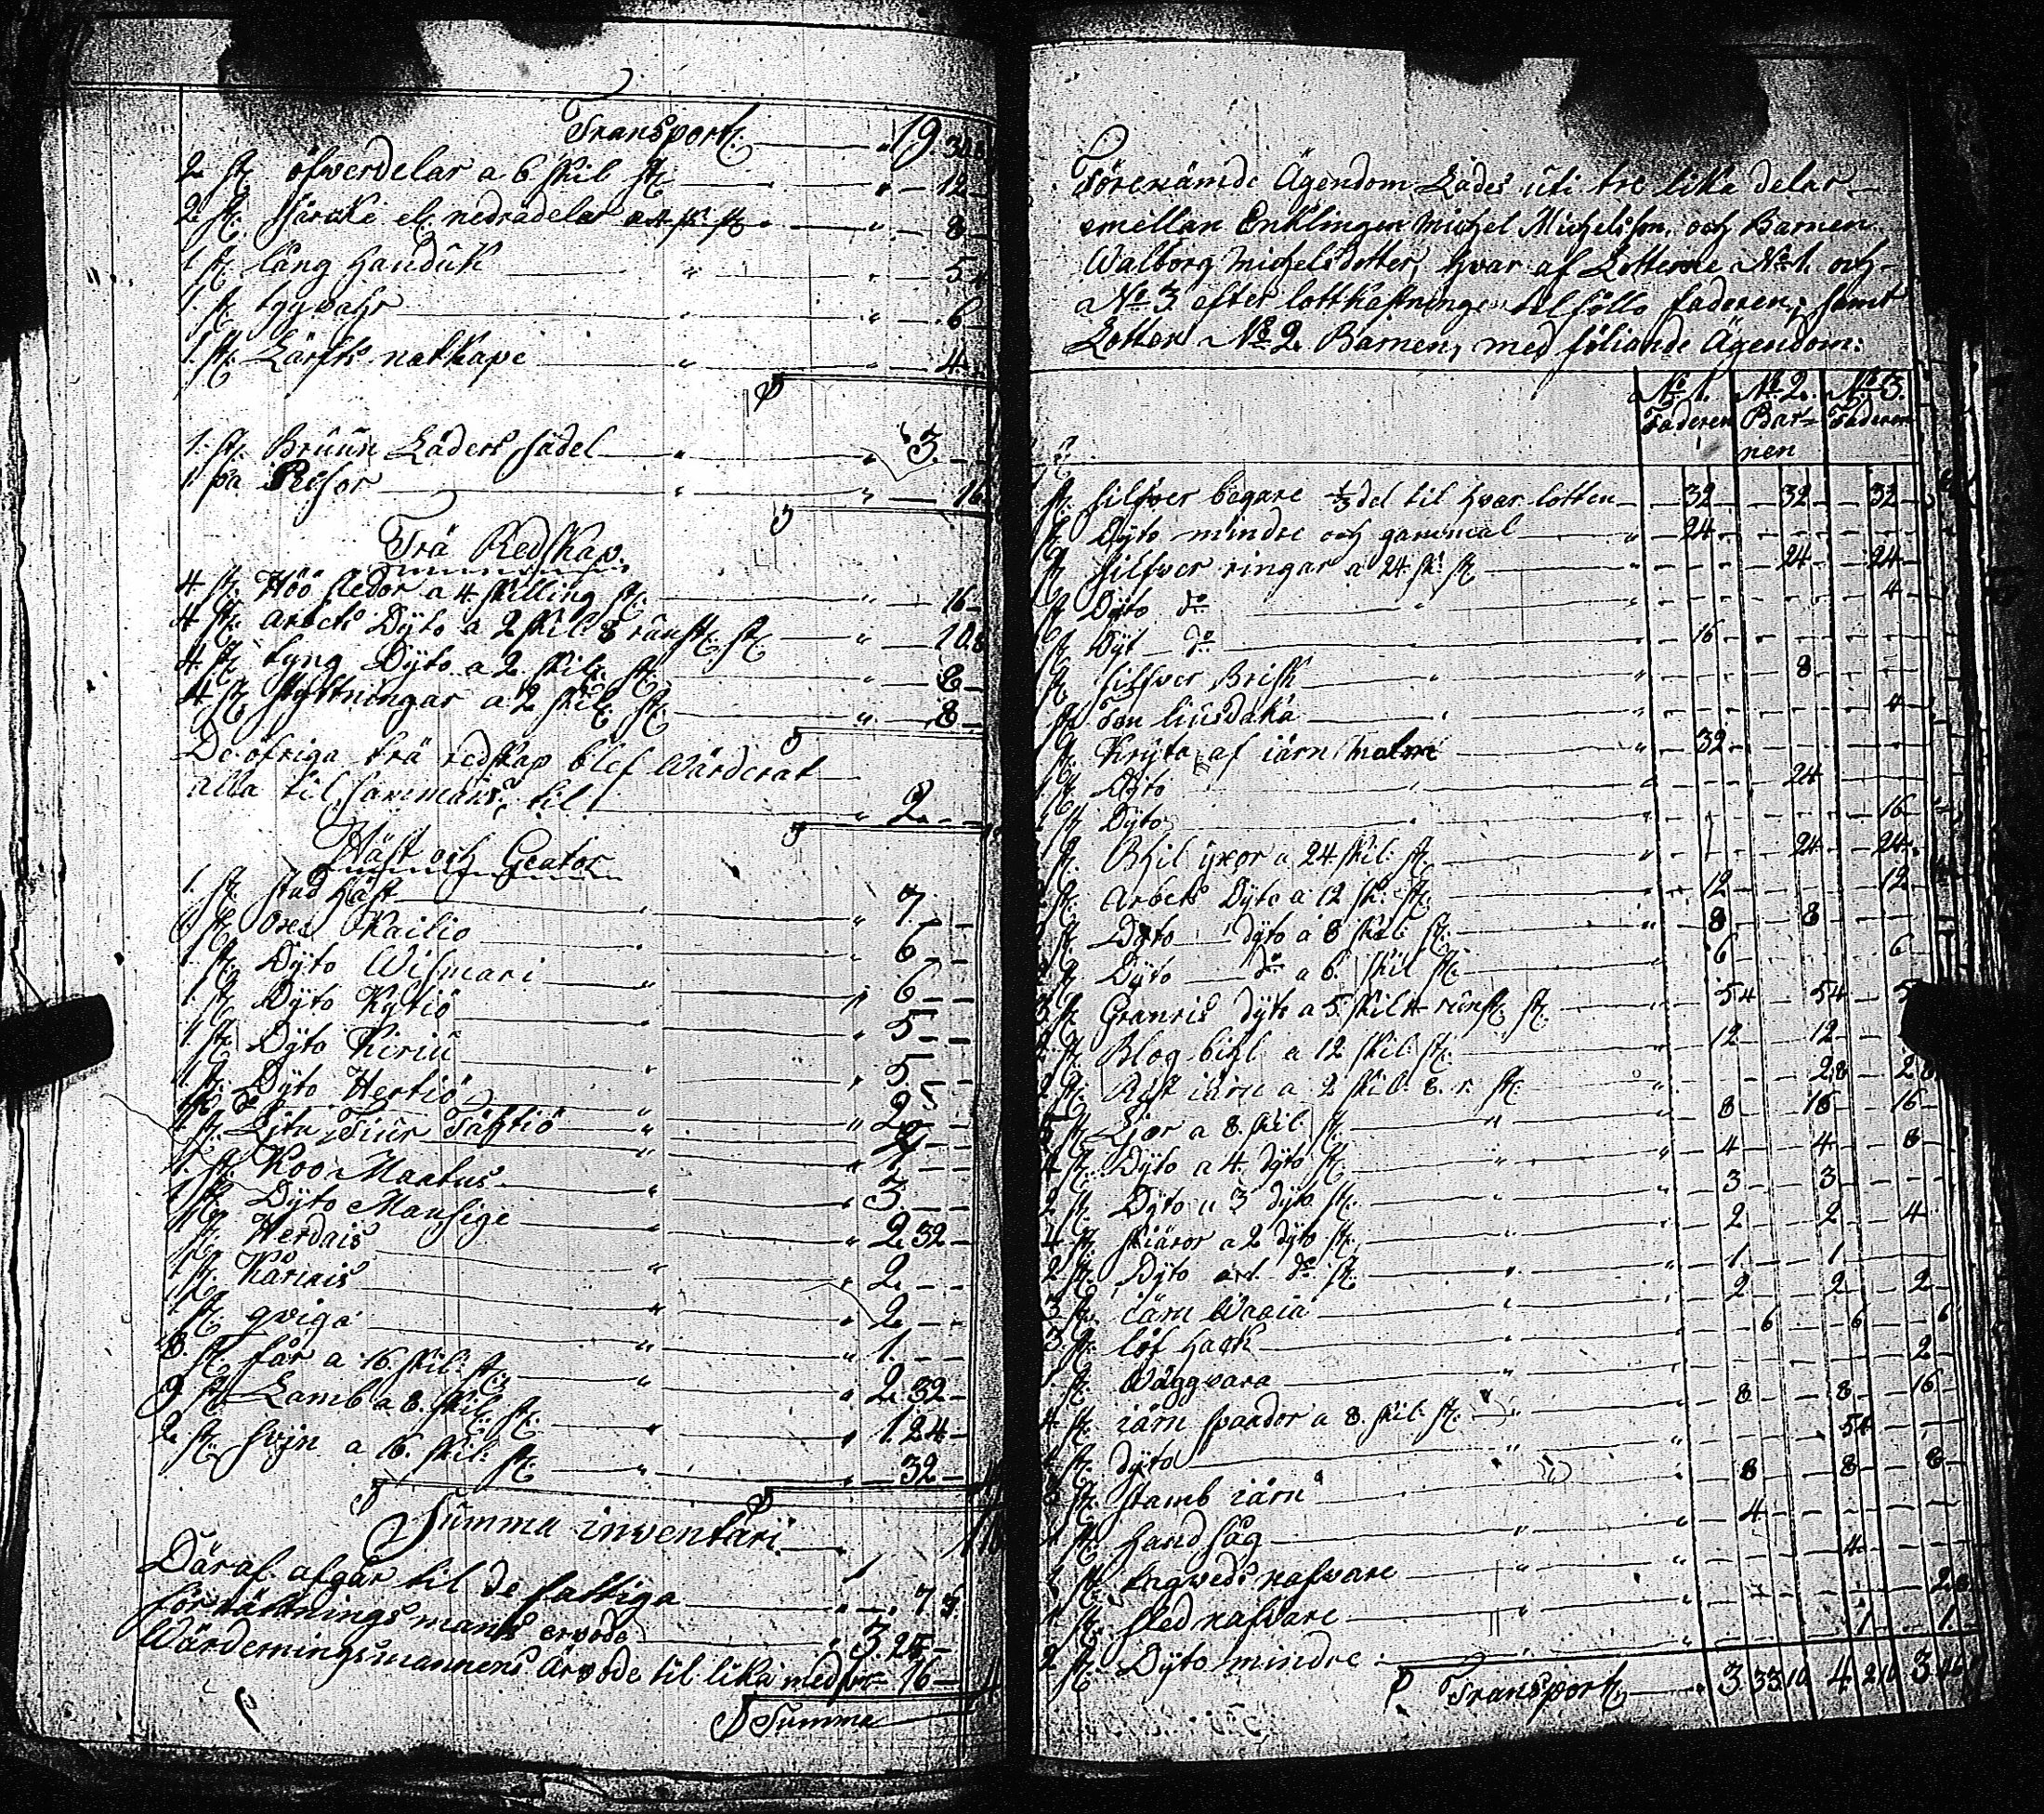 Transport 19. 32
2 st. öfwerdelar a 6 skil st. 12
2 st. särcke el. nedradelar a 4 sk: st 8
1 st. lång handuk 5 4
1 st. tygwahr 6
1 st. Lärfts natkape 4
1. st. Bruun Läders sadel 3.
1. pa Resor 16
Trä Redskap.
4 st. Höö sledor a 4 skilling st. 16
4 st. arbets Dÿto a 2 skil: 8 runst. st. 10.8
4 st. tyng Dÿto a 2 skil: st. 8
4 st. skyttningar a 2 skil: st. 8
De öfriga trä redskap blef Wärderat
alla til sammans, til 2.
Häst och Creator
1. st. stud häst 7.
1 st. Oxe Kailio 6
1. st. Dÿto Wismari 6
1. st. Dÿto Kytiö 5
1 st. Dÿto Kiriu 5
1 st. Dÿto Hertiö 5
1 st. Lite Tiur Tähtiö 2
1. st. Koo Mantus 3
1 st. Dÿto Mansige 2 32
1 st. Herdais 2
1 st. Karnis 2
1 st. qviga 1.
8. st. får a 16. skil: st. 2 32
9 st. Lamb a 8. skil: st. 1 24
2 st. svijn a 16. skil: st. 32
Summa inventari
Däraf afgår til de fattiga 7 3
förrättnings mans arvode 3. 25
Wärderningsmannens Arvode til lika med 16
Summa
Förenämde Ägendom Lades uti tre lika delar
emellan Enklingen Michel Michelsson, och Barnen
Walborg Michelsdotter, hvar af Lotterne No 1. och
No 3. efter lottkastninge tilföllo faderen, samt
Lotten No 2. Barnen, med föliande Ägendom:
No 1. No 2. No 3.
Faderen Bar= Faderen
nen
st. silfwer bägare 1/3 del til hvar lotten 32 32 32
st. Dÿto mindre och gammal 24
2 st. silfwer ringar a 24 sk: st 24 24
1 st. Dÿto do 4
1 st. Dÿt do 16
1 st. silfwer Brisk 8
1 st. Ten liusdaka 4
1 st. Krÿta af iärn malm 32
1 st. Dÿto 24
1 st. Dÿto 16
2 st. Bhil ÿxor a 24 skil: st. 24 24
2 st. Arbets Dÿto a 12 sk: st. 12 12
2 st. Dÿto dÿto a 8 skil: st. 8 8
2 st. Dÿto do a 6 skil st. 6 6
3 st. Granris dÿto a 5 skil 4 runst. st. 5 4 5 4 5
2 st. Blog bihl a 12 skil: st. 12 12
2 st. Rist iärn a 2 skil: 8. r. st. 2.8 2 8
5 st. Liar a 8. skil: st. 8 16 16
4 st. Dÿto a 4 dÿto st. 4 4 8
2 st. Dÿto a 3 dÿto st. 3 3
4 st. skiäror a 2 dÿto st. 2 2 4
2 st. Dÿto a 1 do st. 1 1
3 st. iärn Waaia 2 2 2
3 st. löf hack 6 6 6
1 st. Wäggvara 2
4 st. iärn spandor a 8. skil: st. 8 8 16
1 st. dÿto 5 4
3 st. stamb iärn 8 8 8
1 st. hand såg 4
1 st. tagweds nafware 4
1 st. sled nafware 2.
2 st. Dÿto mindre 1 1
Transport 3 33 10 4 2 10 3